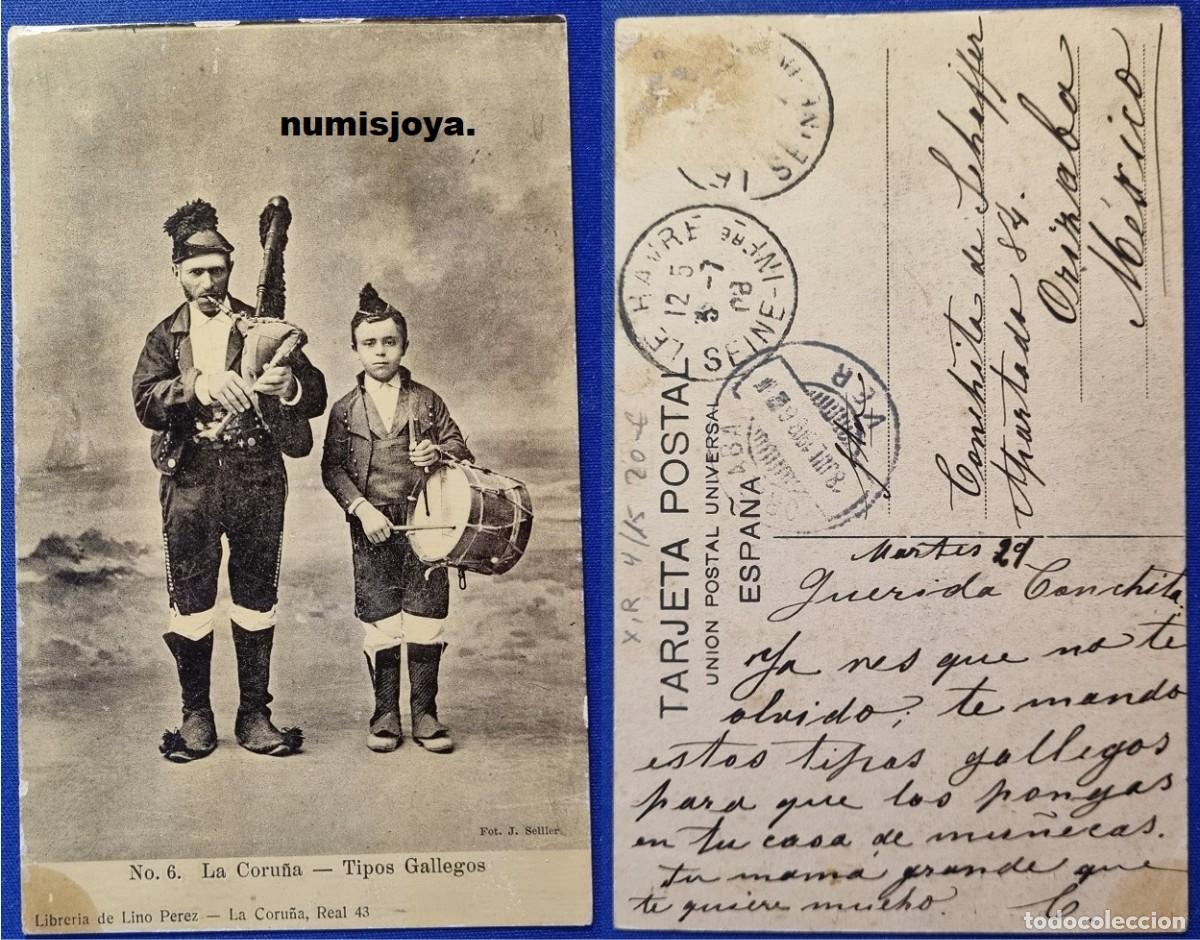 numisjoya.
Fot. J. Sellier
No. 6. La Coruña — Tipos Gallegos
Libreria de Lino Perez — La Coruña, Real 43
LE HAVRE
SEINE-INFRE
12 5
SEINE
TARJETA POSTAL
UNION POSTAL UNIVERSAL
ESPAÑA
VER
X.R 4/15 20-€
Conchita de Schaeffer
Apartado 84.
Orizaba
México
Martes 29
Querida Conchita.
Ya ves que no te
olvido; te mando
estos tipos gallegos
para que los pongas
en tu casa de muñecas.
tu mamá grande que
te quiere mucho. C.
todocoleccion